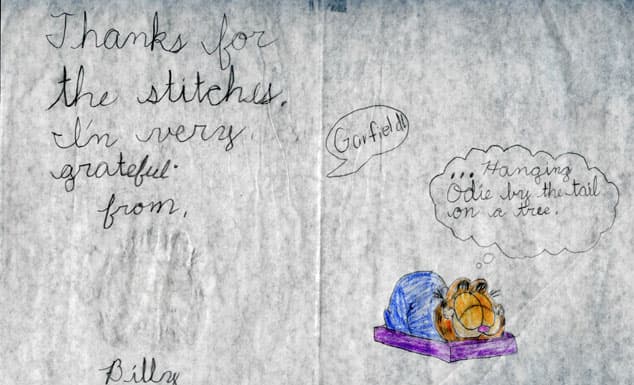 Thanks for
the stitches.
I'm very
grateful.
from,
Billy
Garfield!!
... Hanging
Odie by the tail
on a tree.